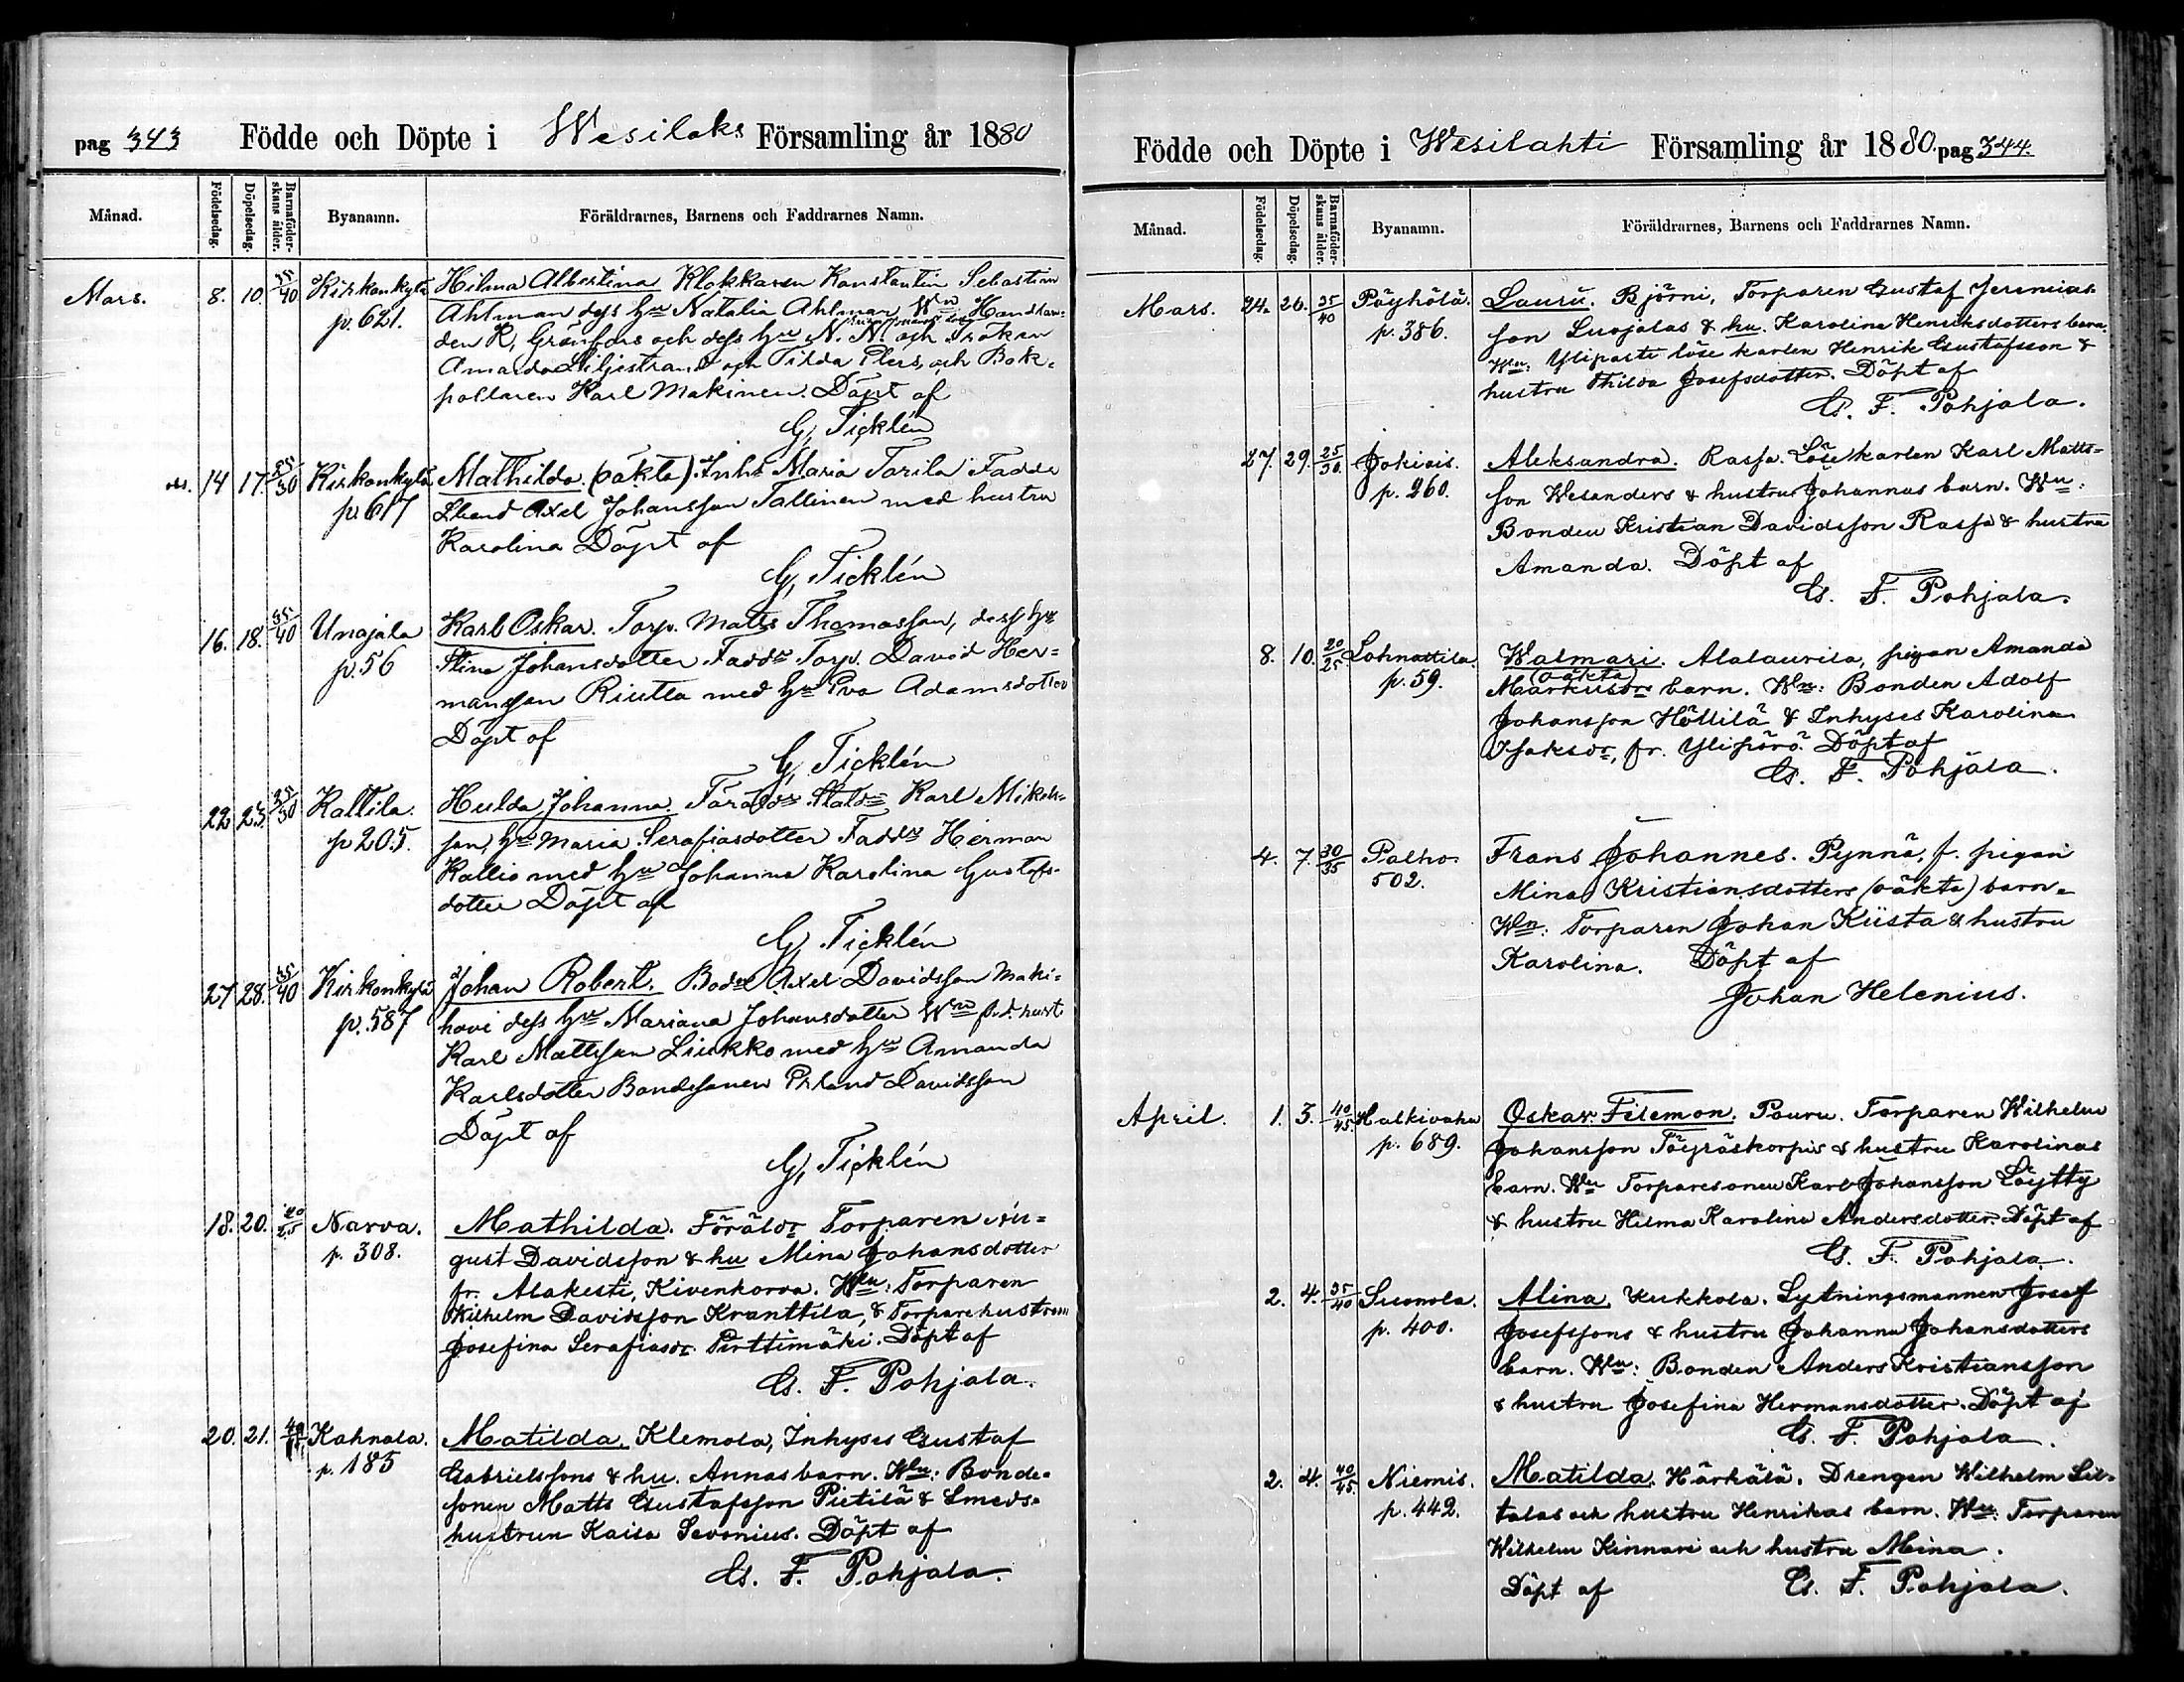 pag 343 Födde och Döpte i Wesilaks Församling år 1880
Månad. Födelsedag. Döpelsedag. Barnaföderskans ålder. Byanamn. Föräldrarnes, Barnens och Faddrarnes Namn.
Mars. 8. 10. 35/40 Kirkonkylä Hilma Albertina Klokkaren Konstantin Sebastian
p. 621. Ahlman dess hu Natalia Ahlman Wn Handlan-
den K, Grönfors och dess hu N. N. och Fröken
Amanda Liljestrand och Tilda Elers, och Bok-
hollaren Karl Makinen. Döpt af
G, Ticklén
ds. 14 17. 25/30 Kirkonkylä Mathilda. (oäkta) Inhs Maria Tarila Fadde
p. 617 Lband Axel Johansson Tallinen med hustru
Karolina Döpt af
G, Ticklén
16. 18. 35/40 Unajala Karl Oskar. Torp. Matts Thomasson, dess hu
p. 56 Stina Johansdotter Faddr Torp. David Her-
mansson Riutta med hu Eva Adamsdotter
Döpt af
G, Ticklén
22 23. 25/30 Kaltila. Hulda Johanna. Föräldr Statd Karl Mikels-
p 205. son, hu Maria Serafiasdotter Faddr Herman
Kallio med hu Johanna Karolina Gustafs-
dotter Döpt af
G, Ticklén
27 28. 35/40 Kirkonkylä Johan Robert. Bodn Axel Davidsson Maki-
p. 587 hovi dess hu Mariana Johansdotter Wn f.d. hust
Karl Mattsson Liukko med hu Amanda
Karlsdotter Bondesonen Erland Davidsson
Döpt af
G, Ticklén
18. 20. 20/25 Narva. Mathilda. Föräldr Torparen Au-
p. 308. gust Davidsson & hu Mina Johansdotter
fr. Alakesti, Kivenkorva. Wn: Torparen
Wilhelm Davidsson Kranttila, & Torparehustrun
Josefina Serafiasdr Pirttimäki. Döpt af
G. F. Pohjala.
20. 21. Kahnala. Matilda. Klemola, Inhyses Gustaf
p. 185 Gabrielssons & hu. Annas barn. Wn: Bonde-
sonen Matts Gustafsson Pietilä & Smeds-
hustrun Kaisa Savonius. Döpt af
G. F. Pohjala.
Födde och Döpte i Wesilahti Församling år 1880. pag 344.
Månad. Födelsedag. Döpelsedag. Barnaföderskans ålder. Byanamn. Föräldrarnes, Barnens och Faddrarnes Namn.
Mars. 24. 26. 35/40 Pöyhölä. Lauru. Björni, Torparen Gustaf Jeremias-
p. 386. son Luojalas & hu. Karolina Henriksdotters barn.
Wn: Yliparti löse karlen Henrik Gustafsson &
hustru Thilda Josefsdotter. Döpt af
G. F. Pohjala.
27. 29. 25/30. Jokiois. Aleksandra. Rassa. Lösekarlen Karl Matts-
p. 260. son Wesanders & hustru Johannas barn. Wn:
Bonden Kristian Davidsson Rassa & hustru
Amanda. Döpt af
G. F. Pohjala.
8. 10. 20/25 Lohnattila. Walmari. Alalaurila, pigan Amanda
p. 59. Markusdr (oäkta) barn. Wn: Bonden Adolf
Johansson Höllilä & Inhyses Karolina
Isaksdr, fr. Ylipörö. Döpt af
G. F. Pohjala.
4. 7. 30/35 Palho Frans Johannes. Pynnä, f. pigan
502. Mina Kristiansdotters (oäkta) barn.
Wn: Torparen Johan Kiista & hustru
Karolina. Döpt af
Johan Helenius.
April. 1. 3. 40/45. Halkivaha Oskar Filemon. Pouru. Torparen Wilhelm
p. 689. Johansson Töyräskorpis & hustru Karolinas
barn. Wn Torparesonen Karl Johansson Löytty
& hustru Hilma Karolina Andersdotter. Döpt af
G. F. Pohjala.
2. 4. 35/40 Suonola. Alina. Kukkola. Lytningsmannen Josef
p. 400. Josefssons & hustru Johanna Johansdotters
barn. Wn: Bonden Anders Kristiansson
& hustru Josefina Hermansdotter. Döpt af
G. F. Pohjala.
2. 4. 40/45. Niemis. Matilda. Härkälä. Drengen Wilhelm Sil-
p. 442. talas och hustru Henrikas barn. Wn: Torparen
Wilhelm Kinnari och hustru Mina.
Döpt af G. F. Pohjala.